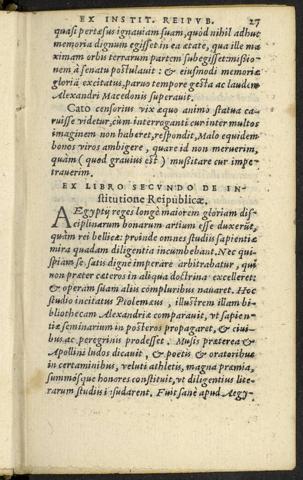 EX INSTIT. REIPVB. 27
quasi pertæsus ignauiam suam, quòd nihil adhuc
memoria dignum egisset in ea ætate, qua ille ma
ximam orbis terrarum partem subegisset: missio-
nem à senatu postulauit: & eiusmodi memoriæ
gloria excitatus, paruo tempore gesta ac laudem
Alexandri Macedonis superauit.
Cato censorius vix æquo animo statua ca-
ruisse videtur, cùm interroganti cur inter multos
imaginem non haberet, respondit, Malo equidem
bonos viros ambigere, quare id non meruerim,
quàm (quod grauius est) mussitare cur impe-
trauerim.
EX LIBRO SECVNDO DE IN-
stitutione Reipublicæ.
AEgyptij reges longè maiorem gloriam dis-
ciplinarum bonarum artium esse duxerūt,
quàm rei bellicæ: proinde omnes studiis sapientiæ
mira quadam diligentia incumbebant. Nec quis-
piam se satis dignè imperare arbitrabatur, qui
non præter cæteros in aliqua doctrina excelleret:
& operam suam aliis compluribus nauaret. Hoc
studio incitatus Ptolemæus, illustrem illam bi-
bliothecam Alexandriæ comparauit, vt sapien-
tiæ seminarium in posteros propagaret, & ciui-
bus ac peregrinis prodesset. Musis præterea &
Apollini ludos dicauit, & poetis & oratoribus
in certaminibus, veluti athletis, magna præmia,
summósque honores constituit, vt diligentius lite-
rarum studiis insudarent. Fuit sanè apud Aegy-